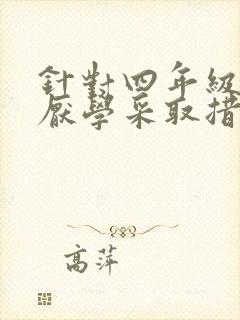 針對四年級
厭學采取措
高萍